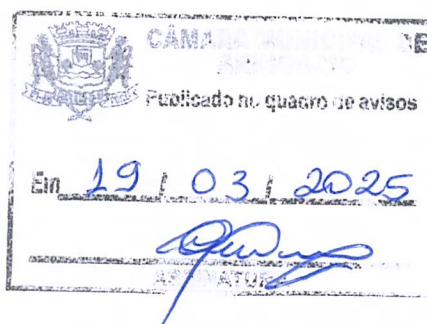 CÂMARA MUNICIPAL DE
Publicado no quadro de avisos
Em 19 / 03 / 2025
ASSINATURA